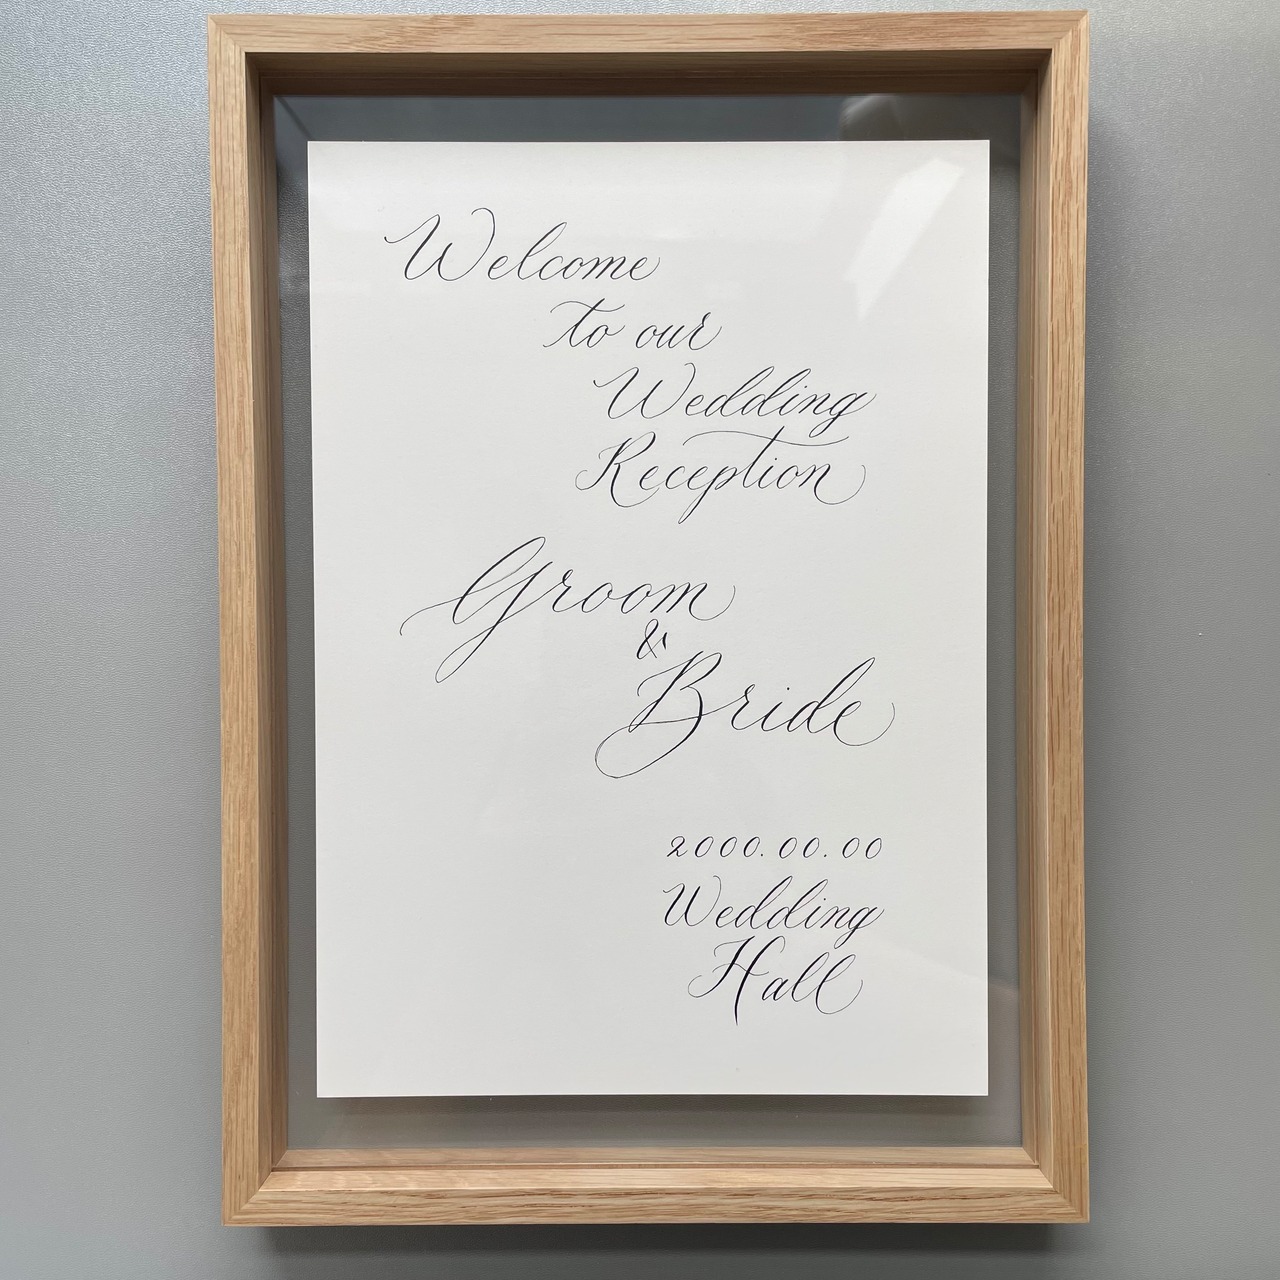 Welcome
to our
Wedding
Reception
Groom
&
Bride
2000.00.00
Wedding
Hall